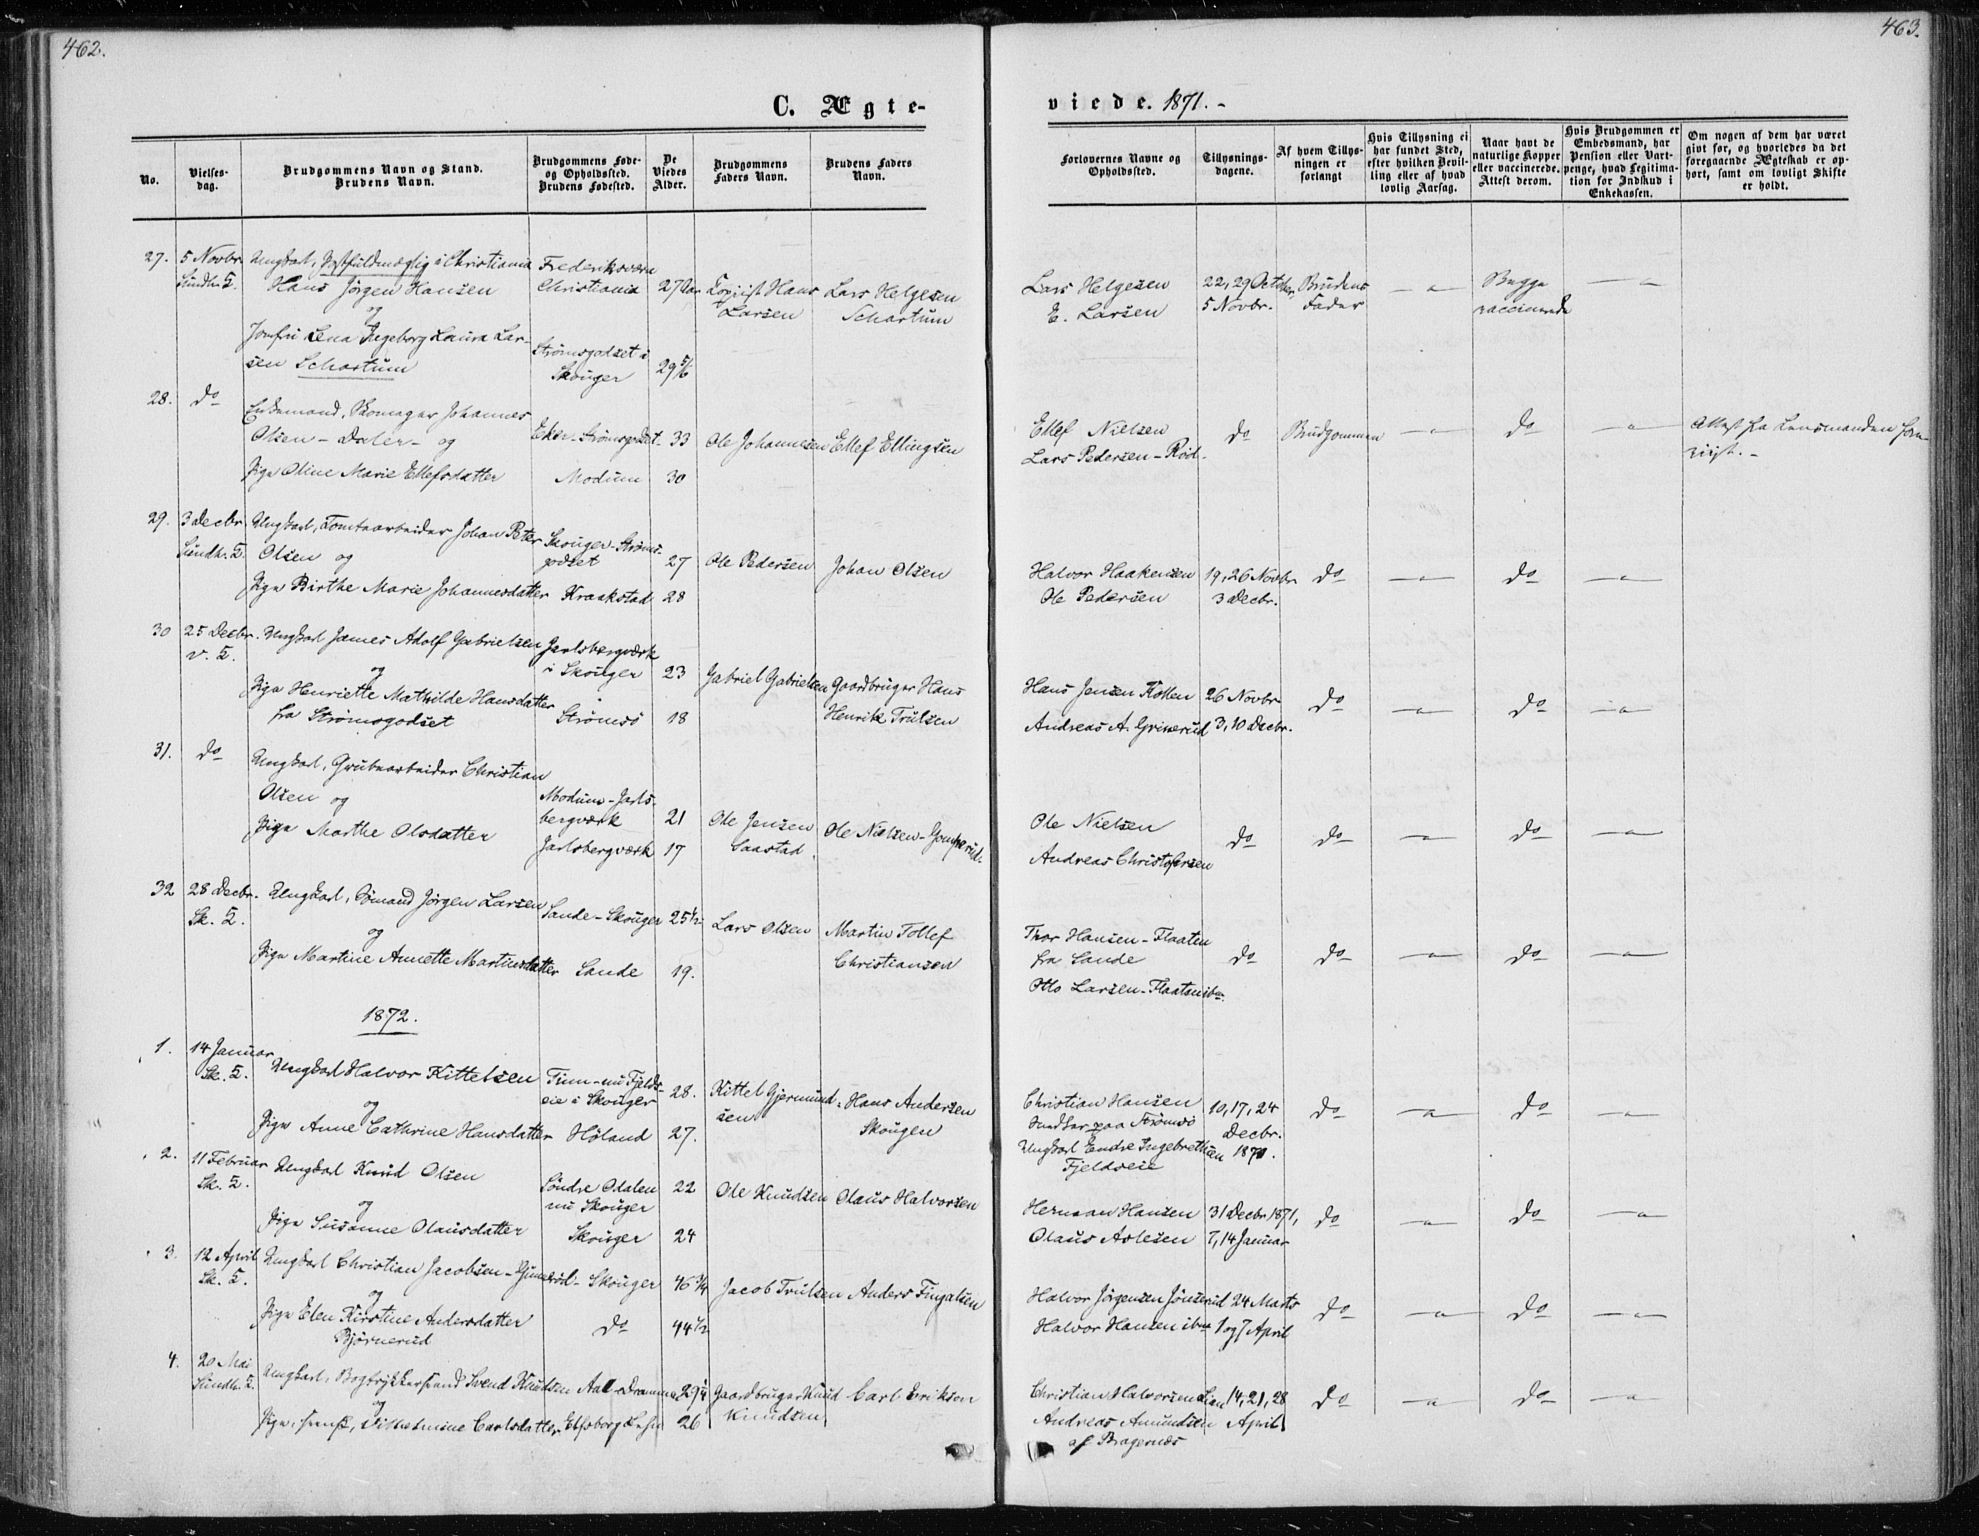 462.
C. Ægte-
No.
Vielses-
dag.
Brudgommens Navn og Stand.
Brudens Navn.
Brudgommens Føde-
og Opholdssted.
Brudens Fødested.
De
Viedes
Alder.
Brudgommens
Faders Navn.
Brudens Faders
Navn.
27. 5 Novbr Ungkarl, Postfuldmægtig i Christiania Frederiksværn
Hans Jørgen Hansen Christiania 27 Aar Hans Lars Helgesen
og Larsen Schartum
Jomfru Lena Ingeborg Laura Lar- Strømsgodset i
sen Schartum Skouger 29 5/6
28. do Enkemand, Skomager Johannes
Olsen - Daler - og Eker - Strømsgodset 33 Ole Johannesen Ellef Ellingsen
Pige Oline Marie Ellefsdatter Modum 30
29. 3 Decbr. Ungkarl, Tomtearbeider Johan Peter Skouger - Strøms-
Olsen og godset 27 Ole Pedersen Johan Olsen
Pige Birthe Marie Johannesdatter Kraakstad 28
30 25 Decbr. Ungkarl James Adolf Gabrielsen Jarlsbergværk
og i Skouger 23 Gabriel Gabrielsen Gaardbruger Hans
Pige Henriette Mathilde Hansdatter Strømsø 18 Henrik Trulsen
fra Strømsgodset
31. do Ungkarl, Grubearbeider Christian
Olsen og Modum - Jarls-
bergværk 21 Ole Jensen Ole Nielsen -
Pige Marthe Olsdatter Jarlsbergværk 17 Saastad
32 28 Decbr. Ungkarl, Sømand Jørgen Larsen Sande - Skouger 25 1/2 Lars Olsen Martin Tollef
Sk. K. og
Pige Martine Annette Martinsdatter Sande 19. Christiansen
1872.
1. 14 Januar Ungkarl Halvor Kittelsen Tinn - nu Fjelds-
Sk. K. og eie i Skouger 28. Kittel Gjermund- Hans Andersen
Pige Anne Cathrine Hansdatter Høland 27. sen Skougen
2. 11 Februar Ungkarl Knud Olsen Søndre Odalen 22 Ole Knudsen Olaus Halvorsen
Sk. K. og nu Skouger
Pige Susanne Olausdatter Skouger 24
3. 12 April Ungkarl Christian Jacobsen - Skouger 46 3/4 Jacob Trulsen Anders Fingalsen
Sk. K. og
Pige Elen Kirstine Andersdatter do 44 1/2
Bjørnerud
4. 20 Mai Ungkarl, Bogtrykkersvend Svend Knudsen Aal - Drammen 29 1/4 Gaardbruger Knud Carl Erikson
og Knudsen
Pige, svensk, Vilhelmine Carlsdatter Elfsborg Lehn 26
463.
viede. 1871. -
Forlovernes Navne og
Opholdssted.
Tillysnings-
dagene.
Af hvem Tillys-
ningen er
forlangt
Hvis Tillysning ei
har fundet Sted,
efter hvilken Bevil-
ling eller af hvad
lovlig Aarsag.
Naar havt de
naturlige Kopper
eller vaccinerede.
Attest derom.
Hvis Brudgommen er
Embedsmand, har
Pension eller Vart-
penge, hvad Legitima-
tion for Indskud i
Enkekassen.
Om nogen af dem har været
givt før, og hvorledes da det
foregaaende Ægteskab er op-
hørt, samt om lovligt Skifte
er holdt.
Lars Helgesen 22, 29 October, Brudens Begge
E. Larsen 5 Novbr. Fader vaccinerede
Ellef Nielsen do Brudgommen do Attest fra Lensmanden
Lars Pedersen - Rød.
Halvor Haakensen 19, 26 Novbr do do
Ole Pedersen 3 Decbr.
Hans Jensen Kollen 26 Novbr do do
Andreas A. Grinerud 3, 10 Decbr.
Ole Nielsen do do do
Andreas Christofersen
Thor Hansen - Flaaten
fra Sande do do do
Otto Larsen - Flaaten ibm.
Christian Hansen 10, 17, 24 do do
paa Strømsø Decbr.
Ungkarl Endre Ingebrethsen 1871.
Fjeldseie
Herman Hansen 31 Decbr 1871, do do
Olaus Aslesen 7, 14 Januar
Halvor Jørgensen Jønserud 24 Marts do do
Halvor Hansen ibm 1 og 7 April
Christian Halvorsen Lian 14, 21, 28 do do
Andreas Amundsen April
af Bragernes